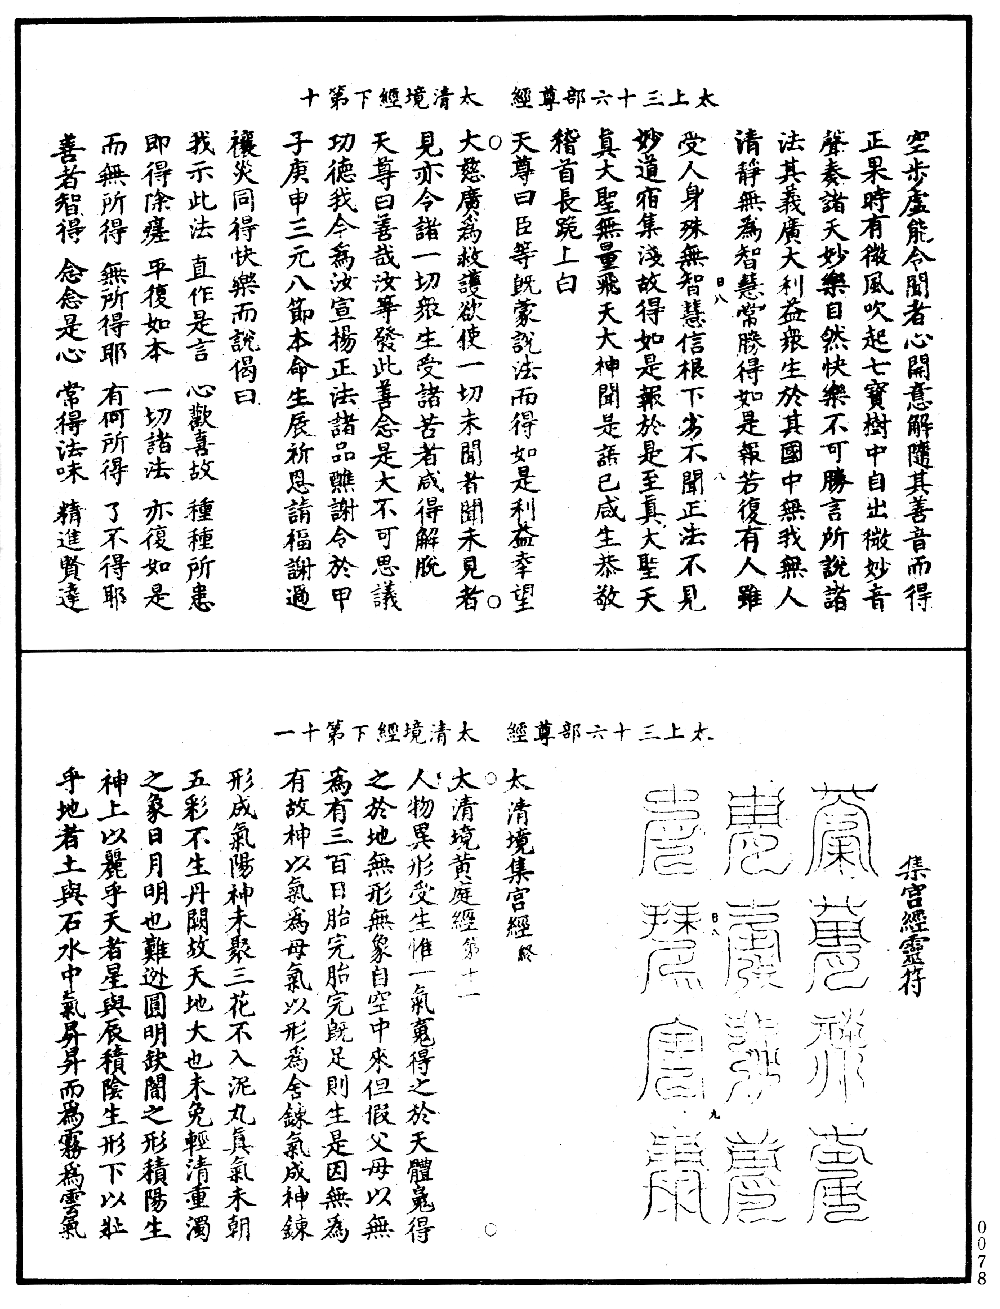 太上三十六部尊經　太清境經下第十
空步虛能令聞者心開意解隨其善音而得
正果時有微風吹起七寶樹中自出微妙音
聲奏諸天妙樂自然快樂不可勝言所說諸
法其義廣大利益眾生於其國中無我無人
清靜無為智慧常勝得如是報若復有人雖
受人身殊無智慧信根下劣不聞正法不見
妙道宿集淺故得如是報於是至真大聖天
真大聖無量飛天大神聞是語已咸生恭敬
稽首長跪上白
天尊曰臣等既蒙說法而得如是利益幸望
大慈廣為救護欲使一切未聞者聞未見者
見亦令諸一切眾生受諸苦者咸得解脫
天尊曰善哉汝等發此善念是大不可思議
功德我今為汝宣揚正法諸品醮謝令於甲
子庚申三元八節本命生辰祈恩請福謝過
禳災同得快樂而說偈曰
我示此法　直作是言　心歡喜故　種種所患
即得除瘥　平復如本　一切諸法　亦復如是
而無所得　無所得耶　有何所得　了不得耶
善者智得　念念是心　常得法味　精進賢達
太上三十六部尊經　太清境經下第十一
集宮經靈符
太清境集宮經終
太清境黃庭經第十一
人物異形受生惟一氣䰟得之於天體䰟得
之於地無形無象自空中來但假父母以無
為有三百日胎完胎完既足則生是因無為
有故神以氣為母氣以形為舍鍊氣成神鍊
形成氣陽神未聚三花不入泥丸真氣未朝
五彩不生丹闕故天地大也未免輕清重濁
之象日月明也難逃圓明缺闇之形積陽生
神上以麗乎天者星與辰積陰生形下以壯
乎地者土與石水中氣昇昇而為霧為雲氣
日八
八
日八
九
0078